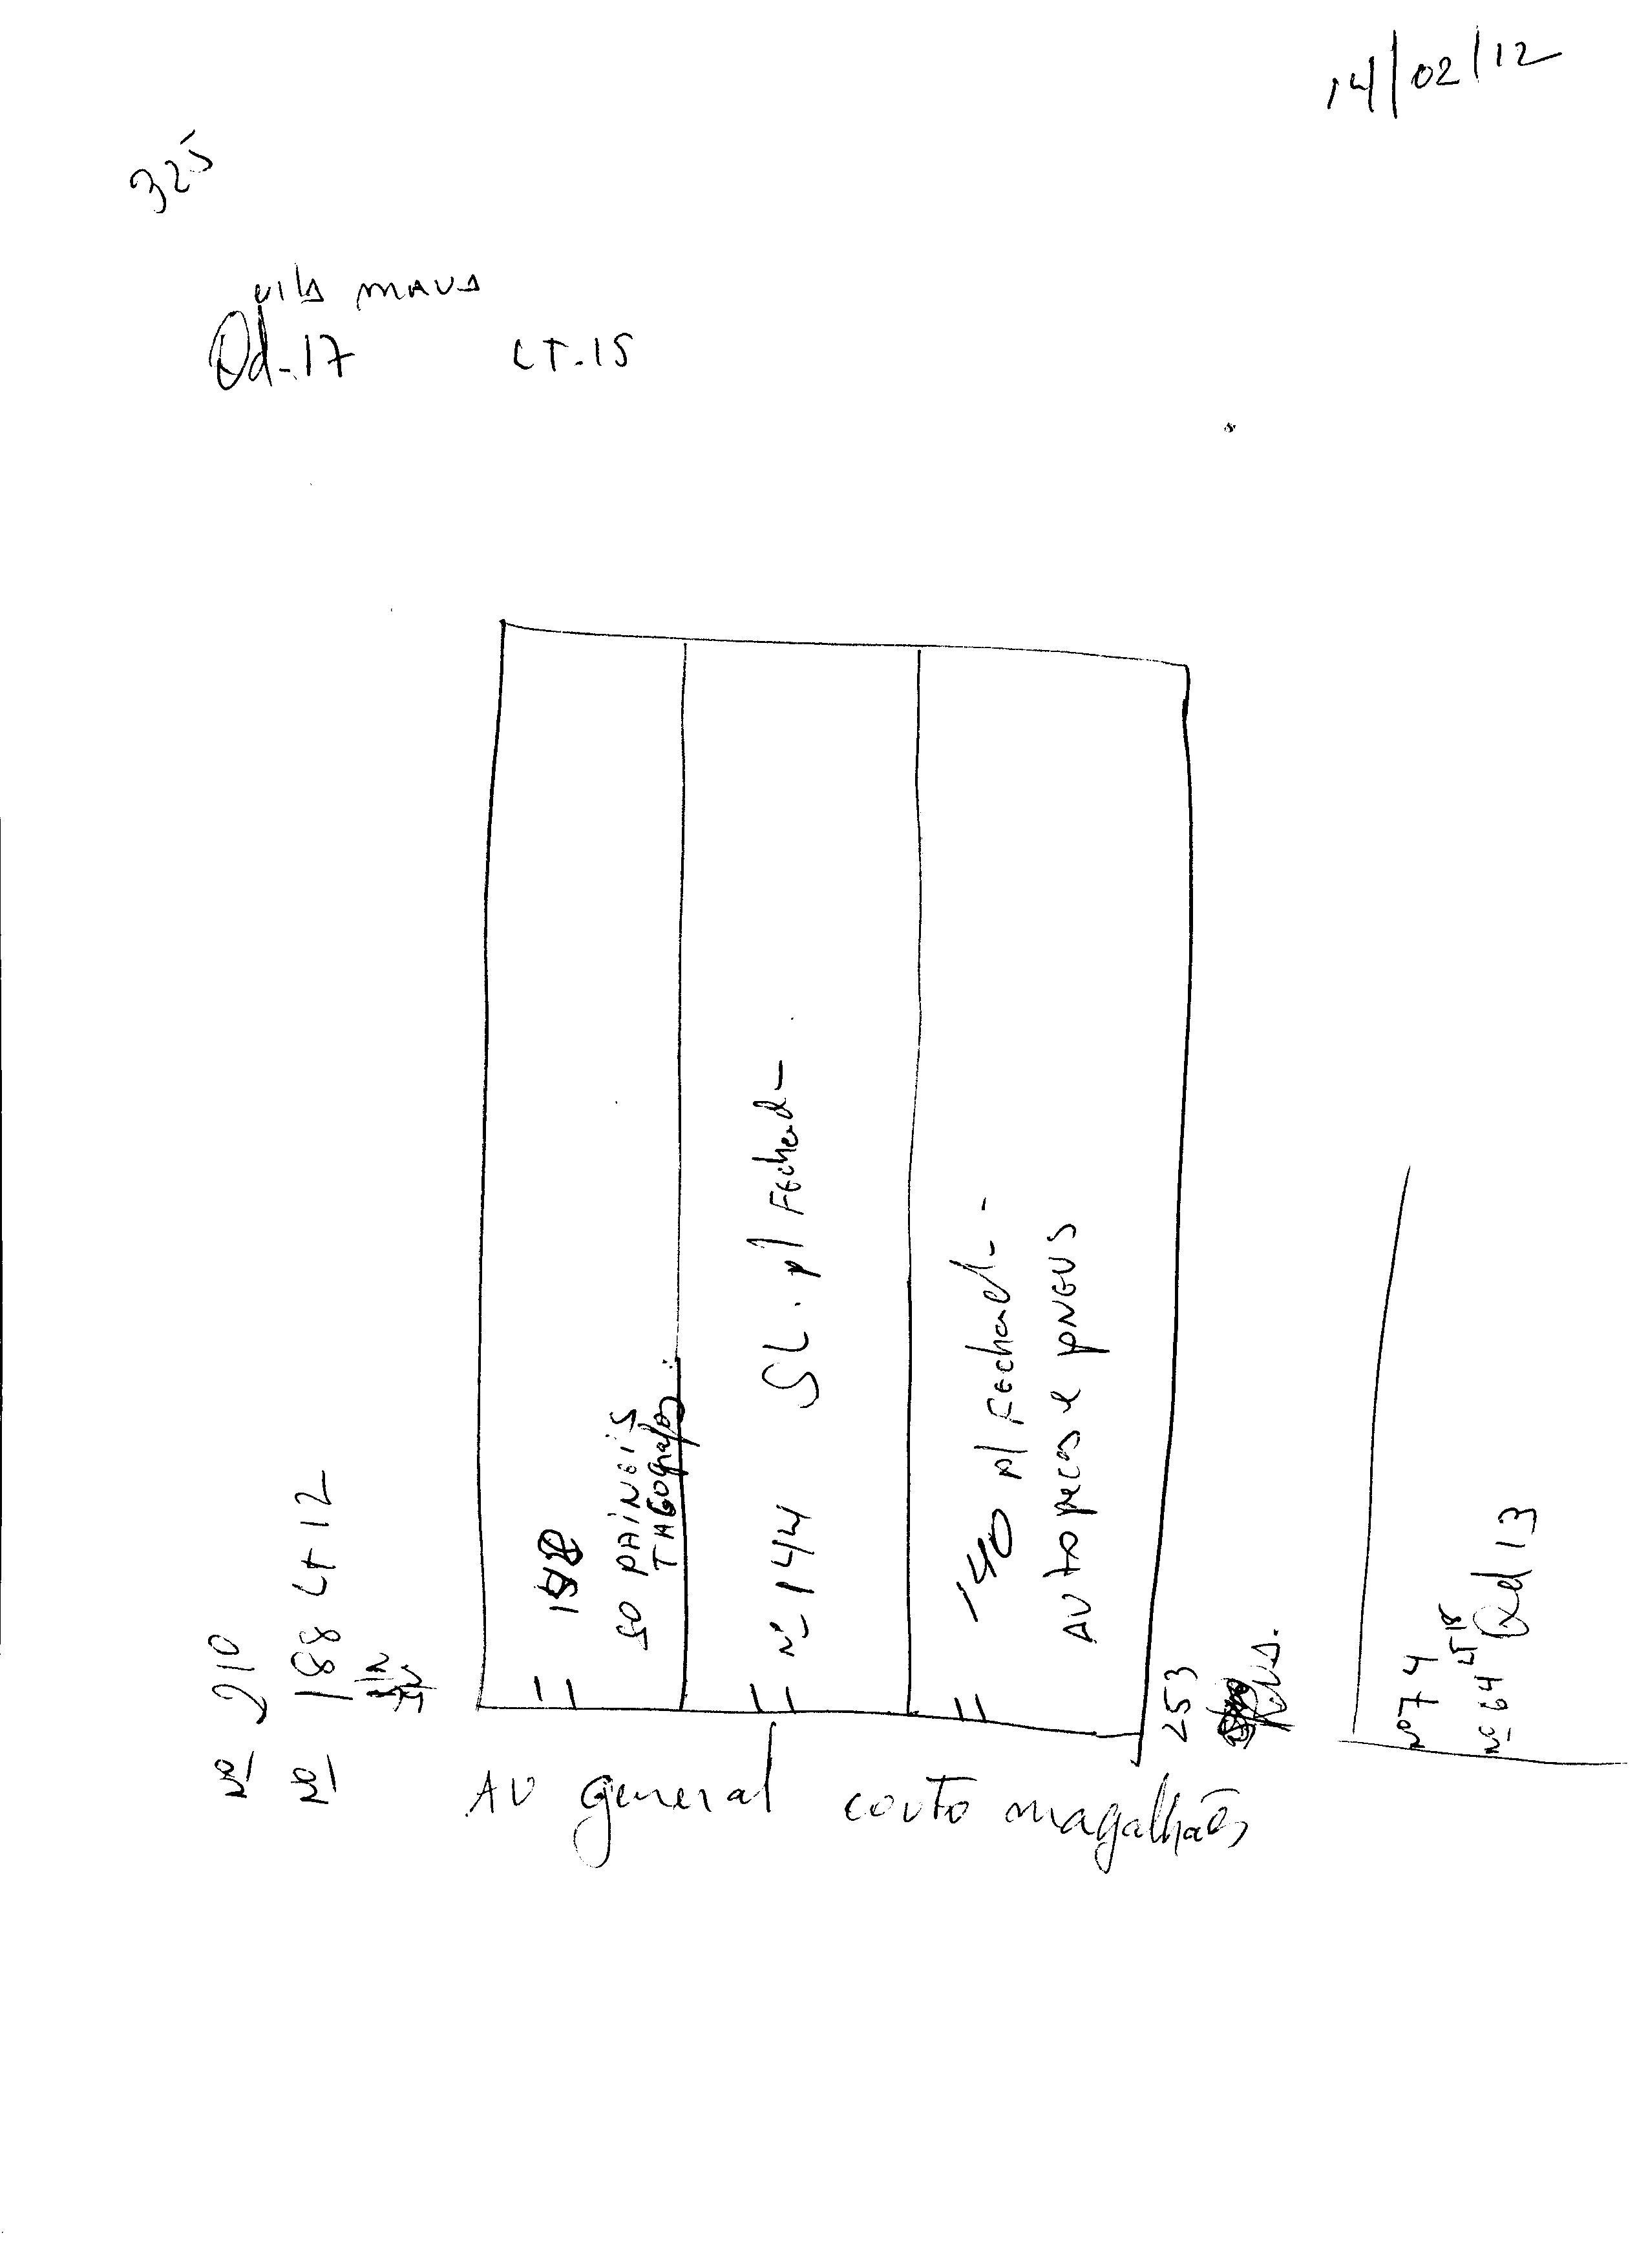 14/02/12
325
vila maua
Qd-17 LT-15
Nº 210
Nº 188 Lt 12
148
SO PAINEIS
TACOgrafos
Nº 144 SL. p/ Fechad-
140 p/ Fechad-
AUtopecas e pNEUS
253
Nº 74
Nº 64 LT 18 Qd 13
AV general couto magalhães